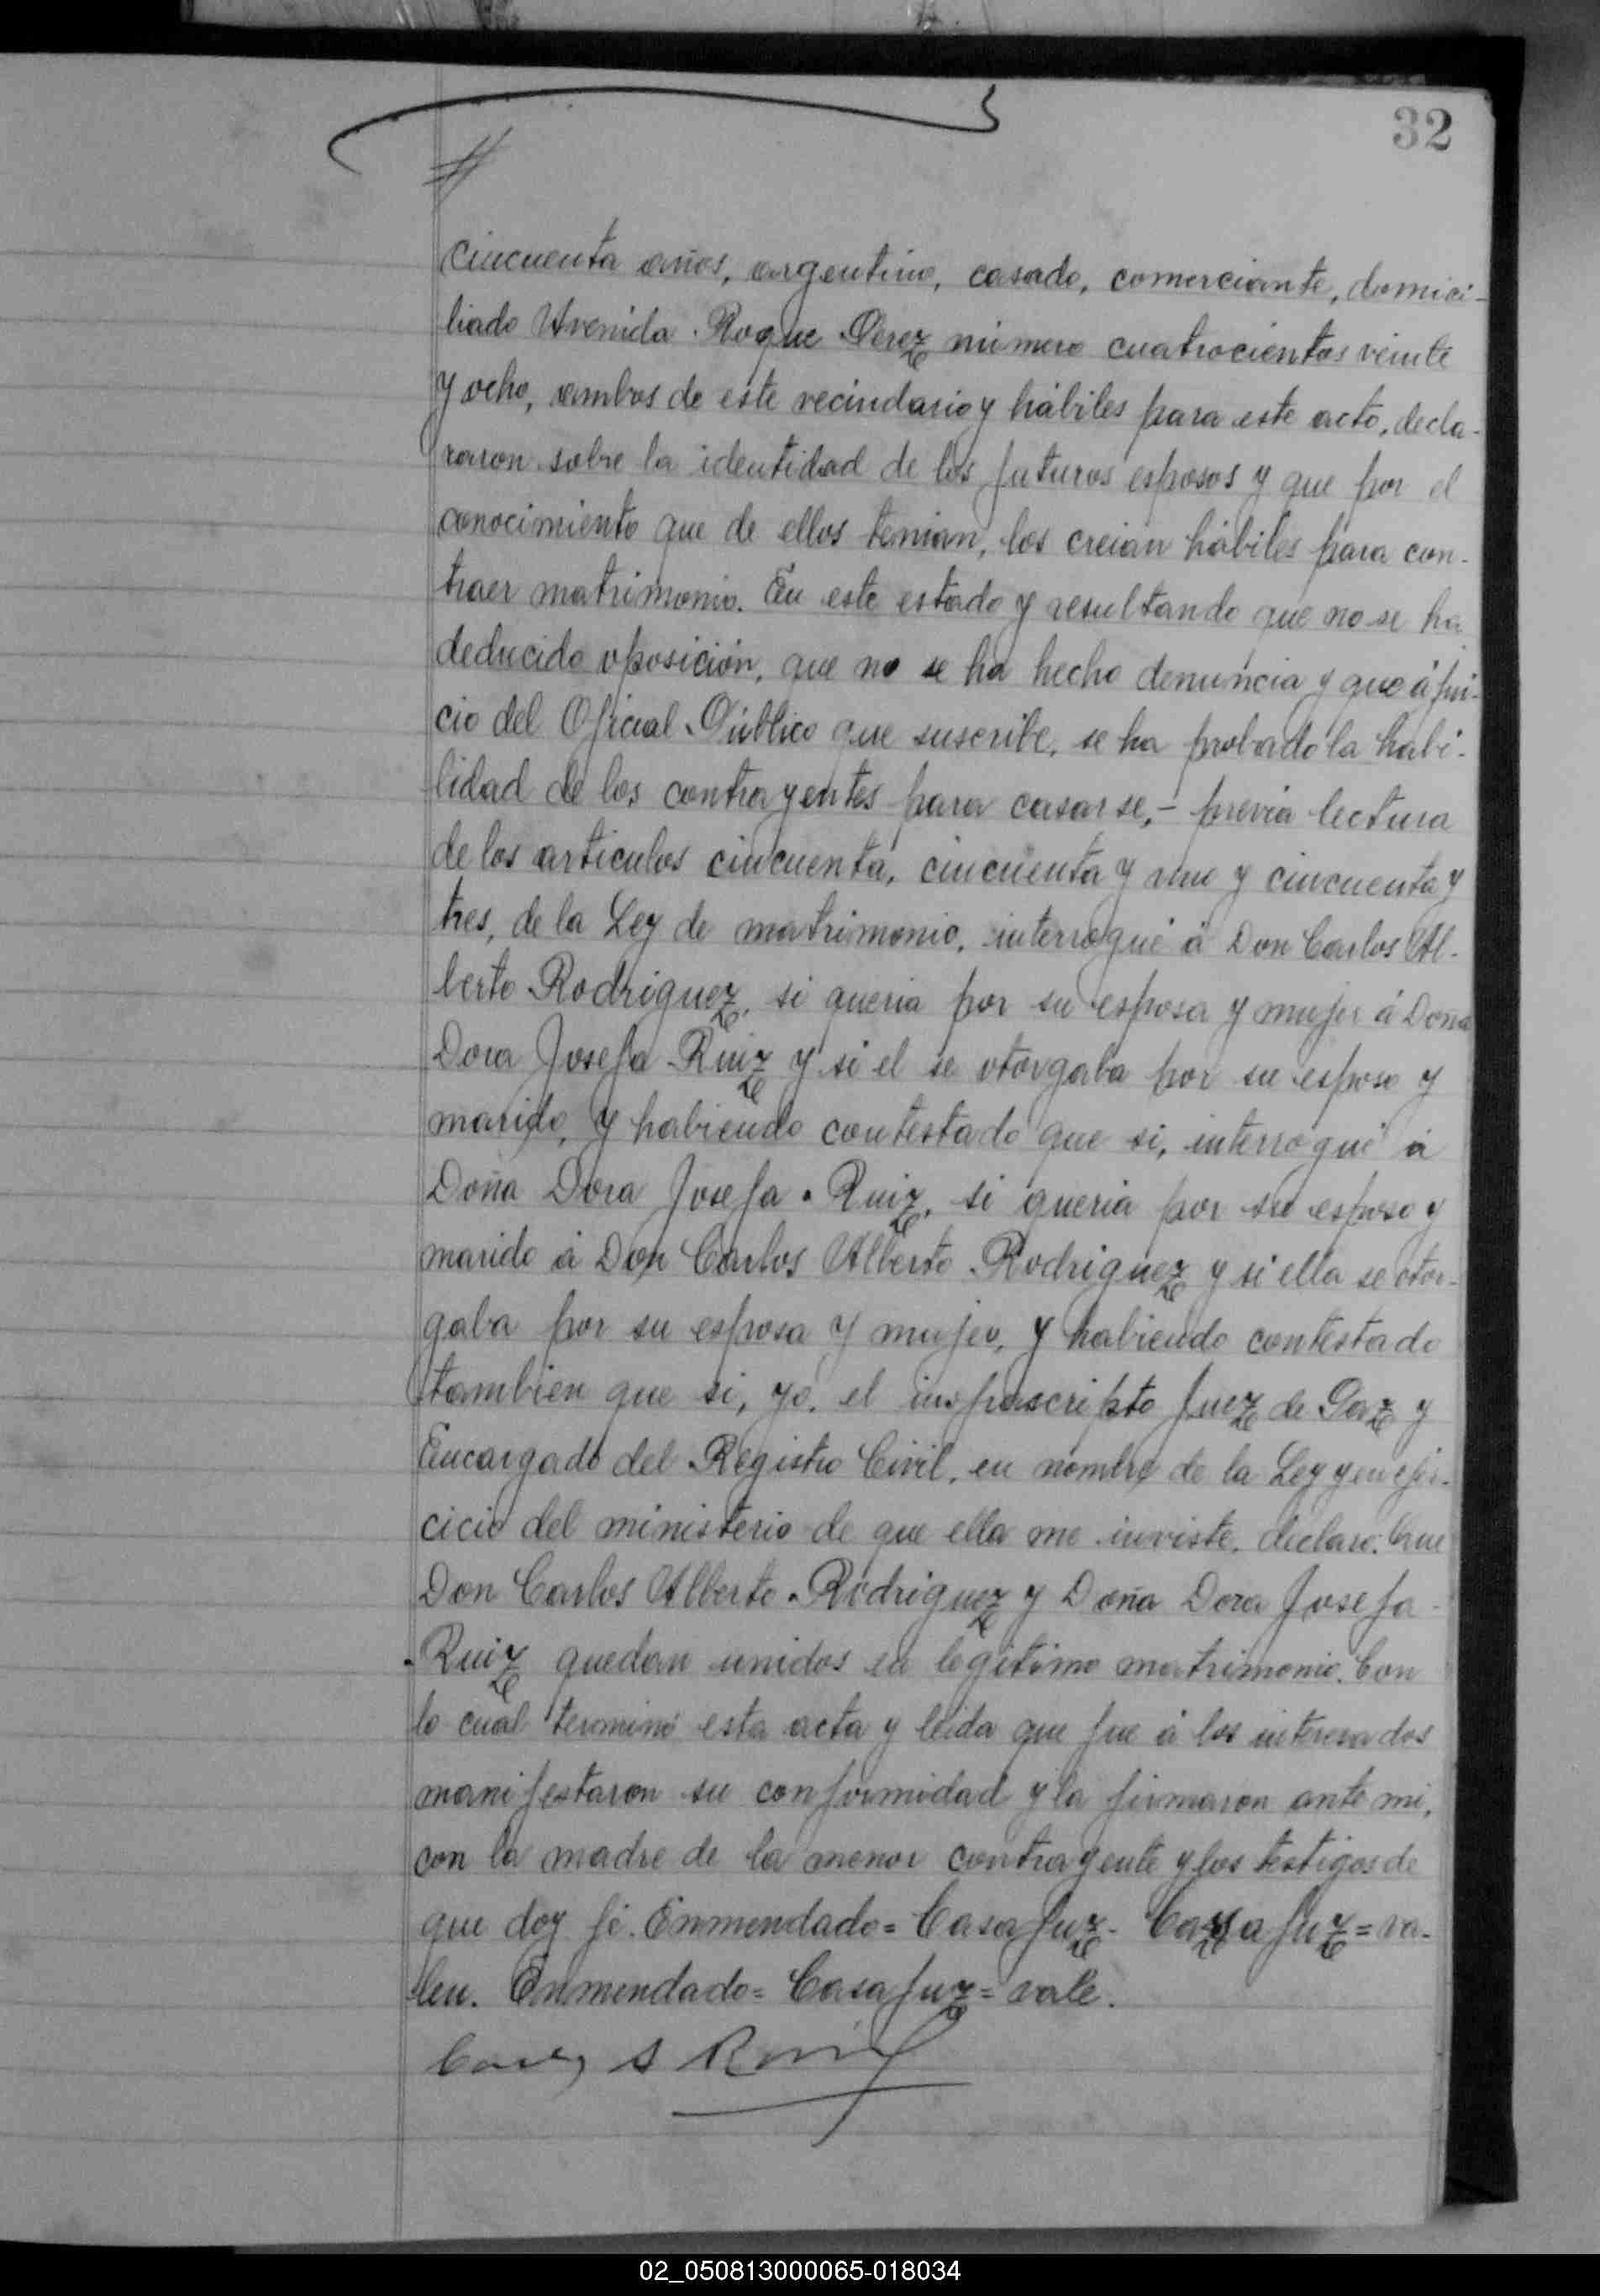 32
cincuenta años, argentino, casado, comerciante, domici-
liado Avenida Roque Perez número cuatrocientos veinte
y ocho, ambos de este vecindario y hábiles para este acto, decla-
raron sobre la identidad de los futuros esposos y que por el
conocimiento que de ellos tenian, los creian hábiles para con-
traer matrimonio. En este estado y resultando que no se ha
deducido oposición, que no se ha hecho denuncia y que á jui-
cio del Oficial Público que suscribe, se ha probado la habi-
lidad de los contrayentes para casarse,- previa lectura
de los articulos cincuenta, cincuenta y uno y cincuenta y
tres, de la Ley de matrimonio, interrogué á Don Carlos Al-
berto Rodriguez, si queria por su esposa y mujer á Doña
Dora Josefa Ruiz y si el se otorgaba por su esposo y
marido, y habiendo contestado que si, interrogué á
Doña Dora Josefa Ruiz, si queria por su esposo y
marido á Don Carlos Alberto Rodriguez y si ella se otor-
gaba por su esposa y mujer, y habiendo contestado
tambien que si, yo, el infrascripto Juez de Paz y
Encargado del Registro Civil, en nombre de la Ley y en ejer-
cicio del ministerio de que ella me inviste, declaro: Que
Don Carlos Alberto Rodriguez y Doña Dora Josefa
Ruiz quedan unidos en legitimo matrimonio. Con
lo cual terminó esta acta y leida que fue á los interesados
manifestaron su conformidad y la firmaron ante mi,
con la madre de la menor contrayente y los testigos de
que doy fé. Enmendado= Casafuz- Casafuz= va-
len. Enmendado= Casafuz= vale.
02_050813000065-018034